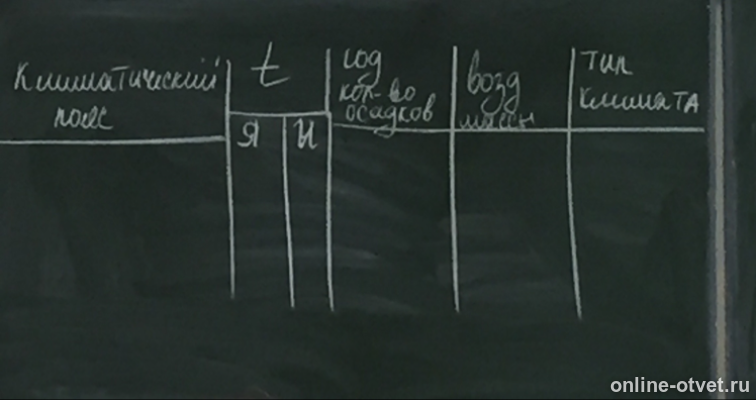 Климатический
пояс
t
Я
И
год
кол-во
осадков
возд
массы
тип
климата
online-otvet.ru